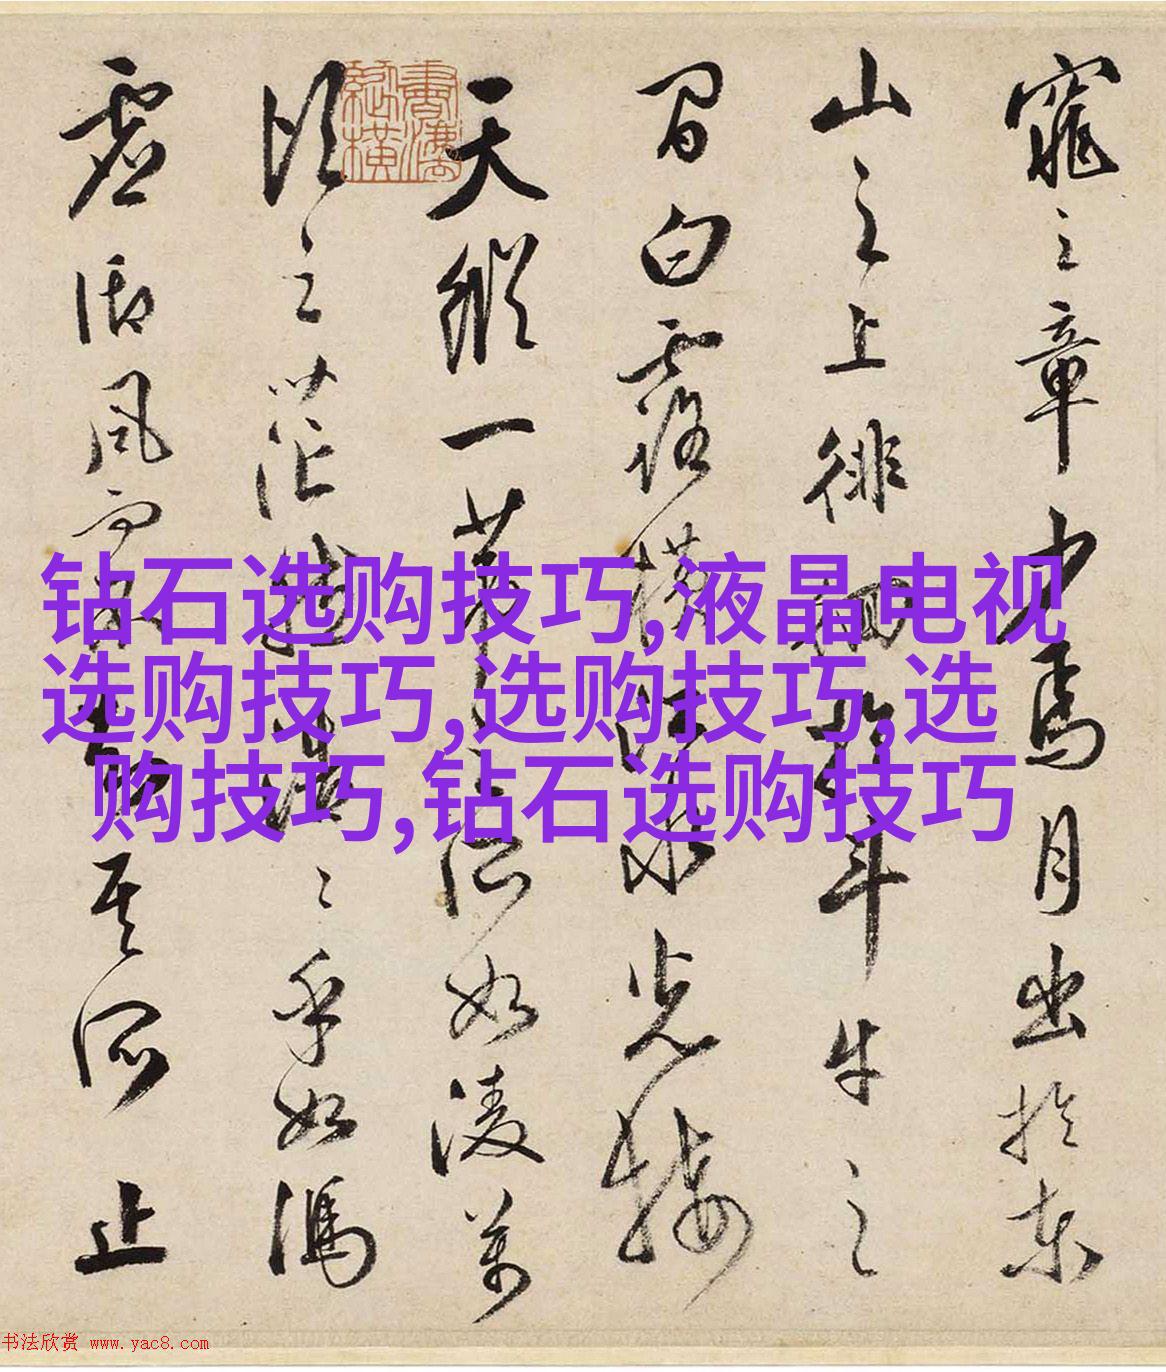 窕之章少焉月出於東
山之上徘徊於斗牛之
間白露橫江水光接
天縱一葦之所如陵萬
頃之茫然浩〻乎如馮
虛御風而不知其所止
钻石选购技巧,液晶电视
选购技巧,选购技巧,选
购技巧,钻石选购技巧
书法欣赏 www.yac8.com